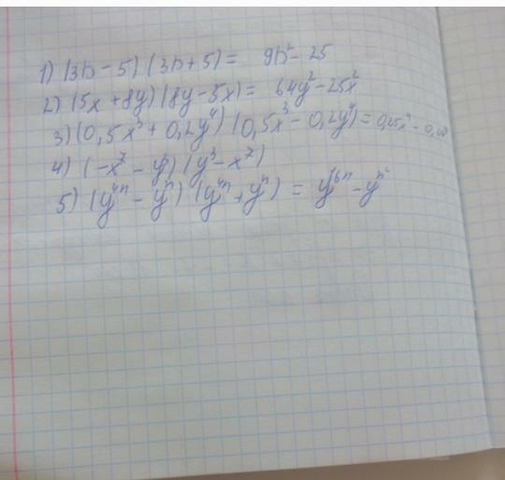 1) (3b - 5) (3b + 5) = 9b² - 25
2) (5x + 8y) (8y - 5x) = 64y² - 25x²
3) (0,5x³ + 0,2y⁴) (0,5x³ - 0,2y⁴) = 0,25x
4) (-x⁷ - y³) (y³ - x⁷)
5) (y⁴ⁿ - yⁿ) (y⁴ⁿ + yⁿ) =